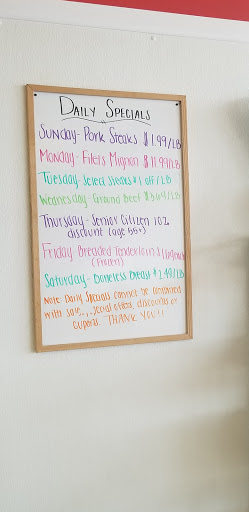 DAILY SPECIALS
Sunday- Pork Steaks $1.99/LB
Monday- Filets Mignon $11.99/LB
Tuesday- Select Steaks $1 off/LB
Wednesday- Ground Beef /LB
Thursday- Senior Citizen 10%
discount (age 55+)
Friday- Breaded Tenderloin
(Frozen)
Saturday- Boneless Breast $2.49/LB
Note: Daily Specials cannot be combined
with sale, special offers, discounts or
cupons. THANK YOU!!